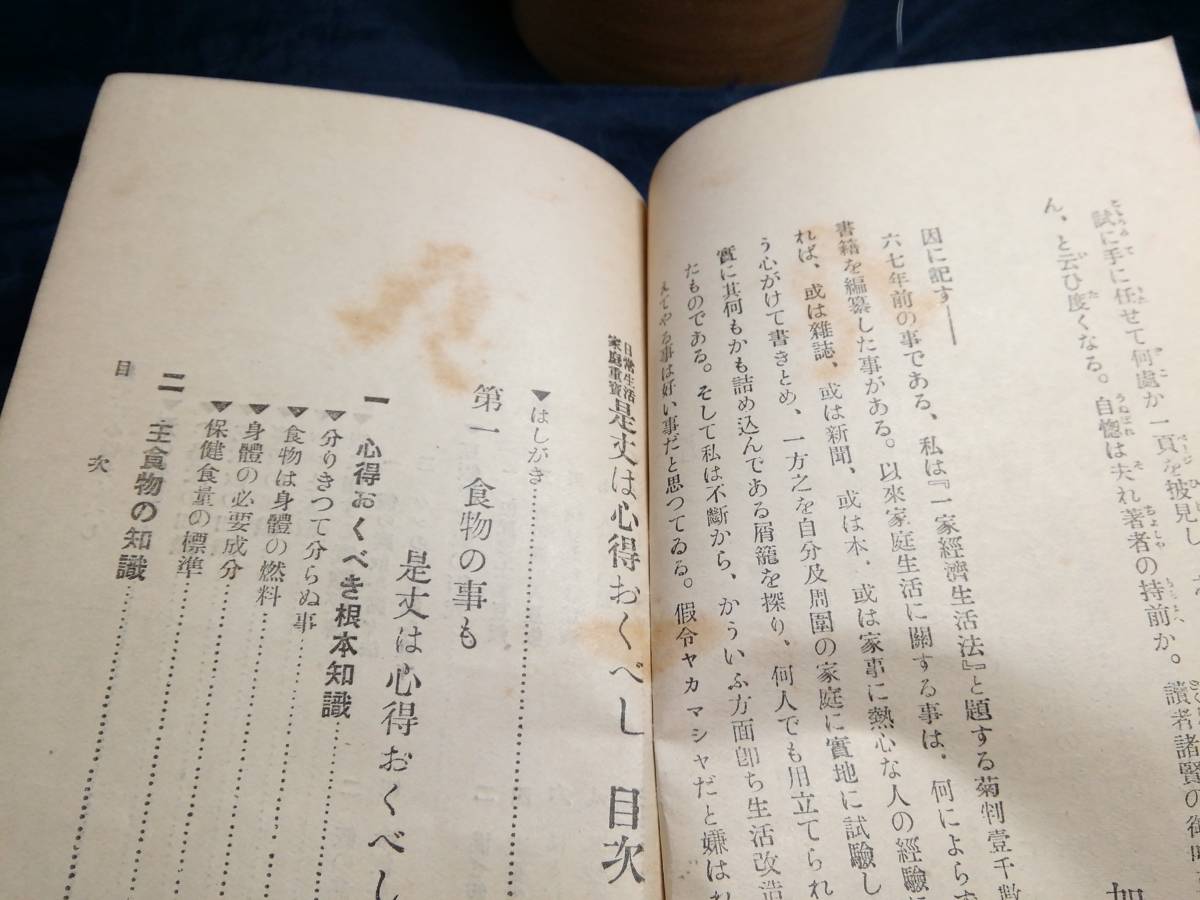 試に手に任せて何處か一頁を披見し
ん、と云ひ度くなる。自惚は夫れ著者の持前か。讀者諸賢の御
因に記す――
六七年前の事である、私は『一家經濟生活法』と題する菊判壹千數
書籍を編纂した事がある。以來家庭生活に關する事は、何によらず
れば、或は雜誌、或は新聞、或は本、或は家事に熱心な人の經驗
う心がけて書きとめ、一方之を自分及周圍の家庭に實地に試驗し
實に其何もかも詰め込んである屑籠を探り、何人でも用立てられ
たものである。そして私は不斷から、かういふ方面卽ち生活改造
えてやる事は好い事だと思つてゐる。假令ヤカマシヤだと嫌はれ
日常生活
家庭重寳
是丈は心得おくべし 目次
▼はしがき
第一 食物の事も
是丈は心得おくべし
一 心得おくべき根本知識
▼分りきつて分らぬ事
▼食物は身體の燃料
▼身體の必要成分
▼保健食量の標準
二 主食物の知識
目次